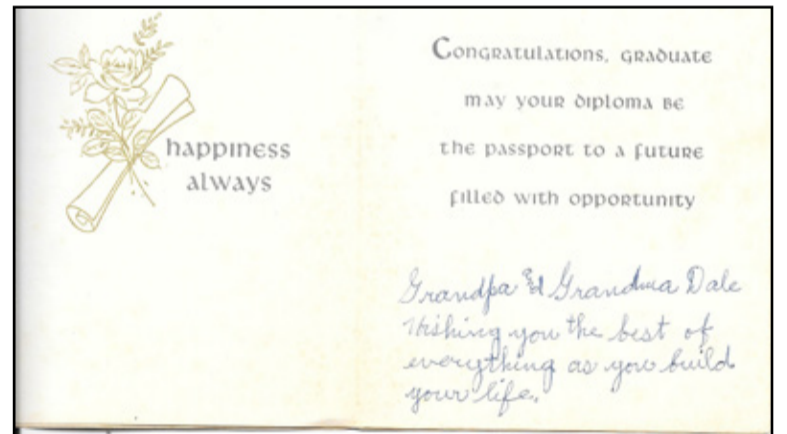 happiness
always
Congratulations, graduate
may your diploma be
the passport to a future
filled with opportunity
Grandpa & Grandma Dale
Wishing you the best of
everything as you build
your life.